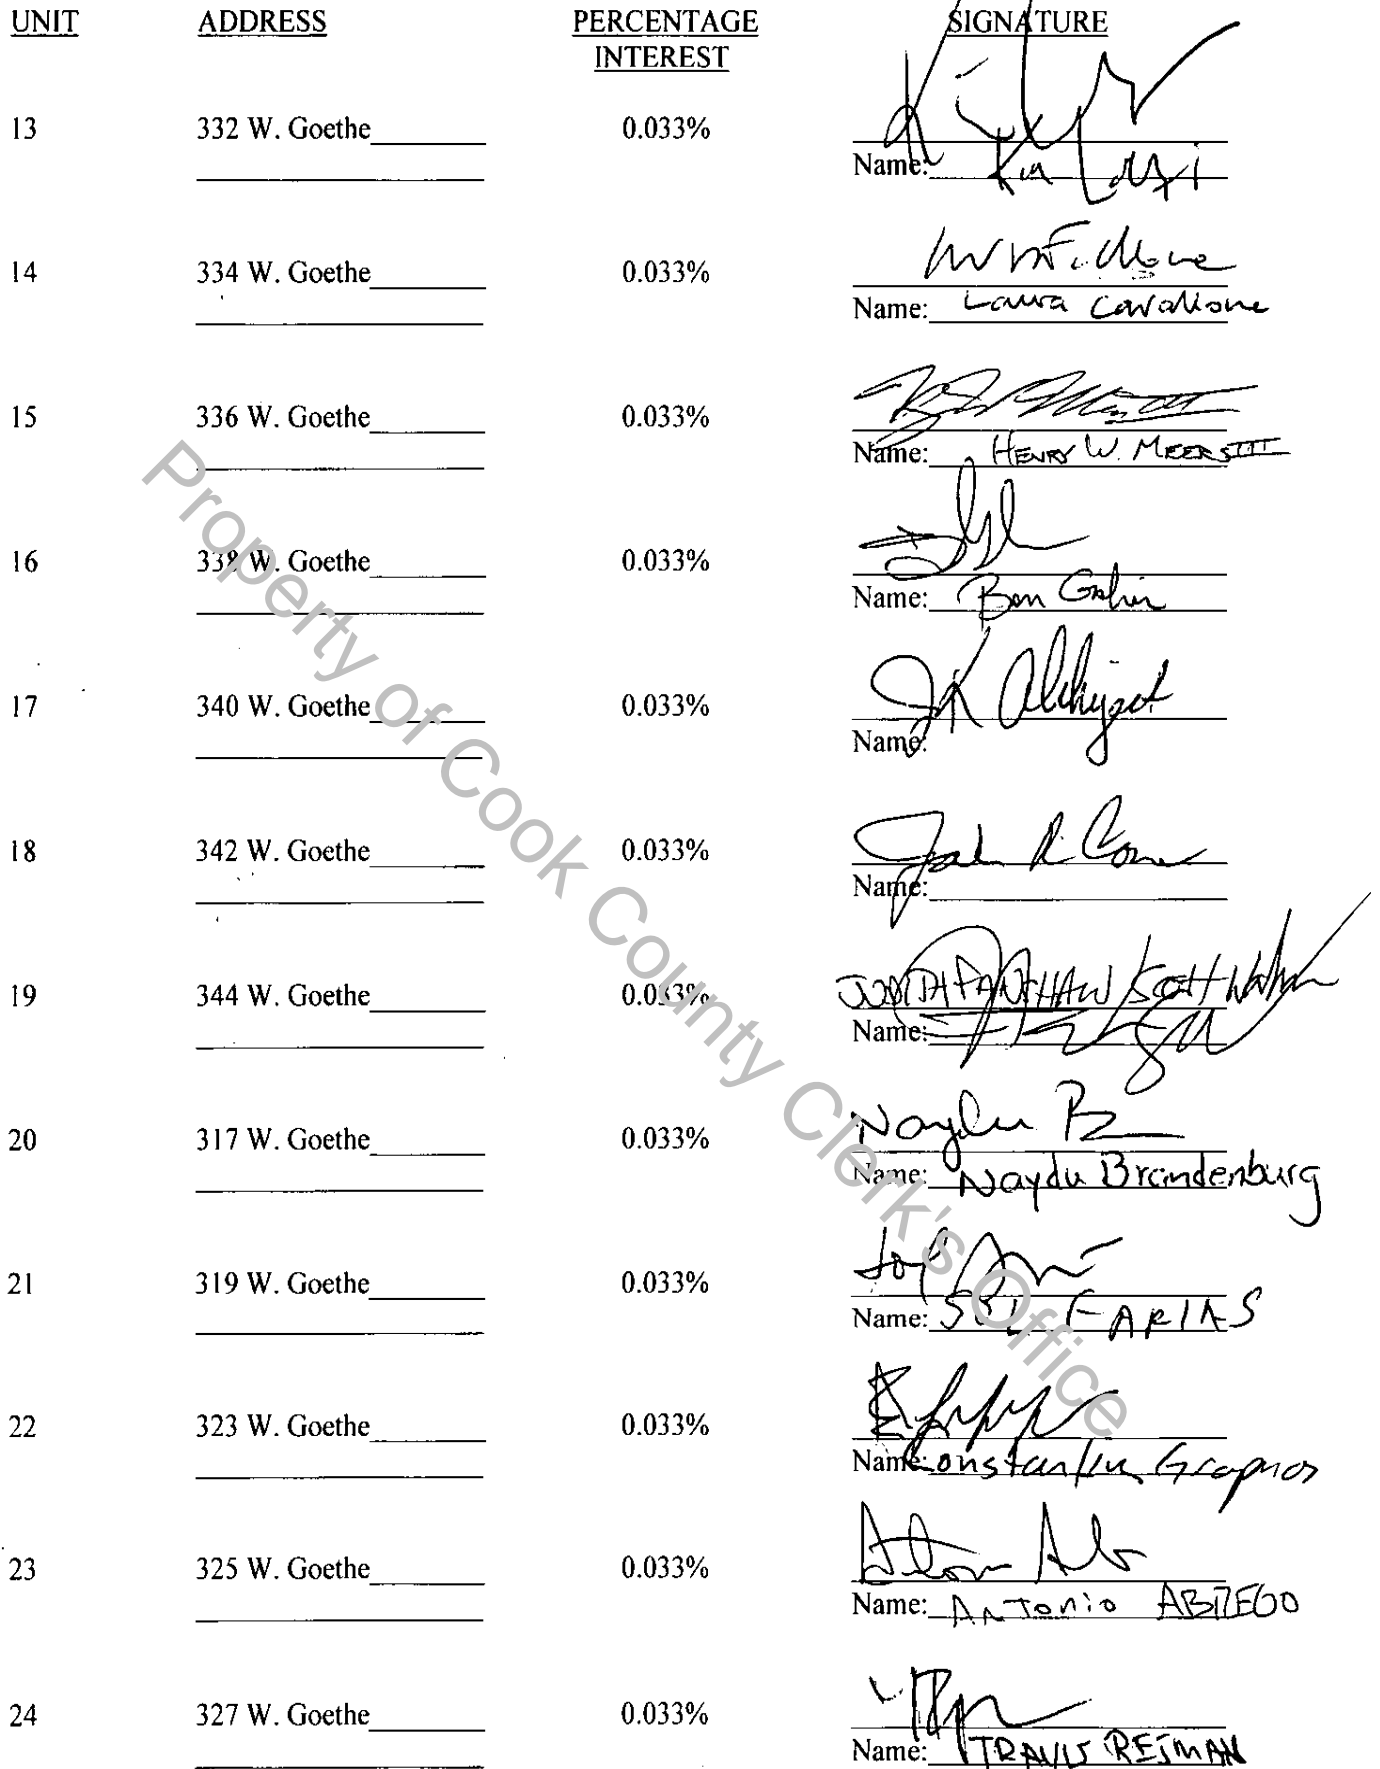 UNIT ADDRESS PERCENTAGE SIGNATURE
INTEREST
13 332 W. Goethe 0.033%
Name: Kia
14 334 W. Goethe 0.033%
Name: Laura Cavallone
15 336 W. Goethe 0.033%
Name: HENRY W. MEERS III
16 338 W. Goethe 0.033%
Name: Ben
17 340 W. Goethe 0.033% JK
Name:
18 342 W. Goethe 0.033% John R
Name:
19 344 W. Goethe 0.033% JUDITH FANSHAW / Scott
Name:
20 317 W. Goethe 0.033% Naydu
Name: Naydu Brandenburg
21 319 W. Goethe 0.033%
Name: SOL FARIAS
22 323 W. Goethe 0.033%
Name: Constantin
23 325 W. Goethe 0.033%
Name: ANTONIO ABREGO
24 327 W. Goethe 0.033%
Name: TRAVIS REJMAN
Property of Cook County Clerk's Office